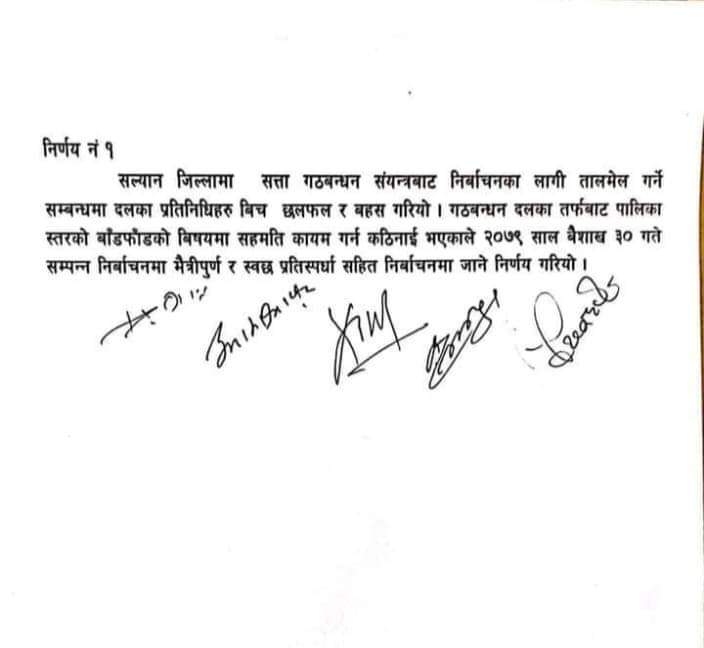 निर्णय नं १
सल्यान जिल्लामा सत्ता गठबन्धन संयन्त्रबाट निर्बाचनका लागी तालमेल गर्ने
सम्बन्धमा दलका प्रतिनिधिहरु बिच छलफल र बहस गरियो । गठबन्धन दलका तर्फबाट पालिका
स्तरको बाँडफाँडको बिषयमा सहमति कायम गर्न कठिनाई भएकाले २०७९ साल बैशाख ३० गते
सम्पन्न निर्बाचनमा मैत्रीपुर्ण र स्वछ प्रतिस्पर्धा सहित निर्बाचनमा जाने निर्णय गरियो ।